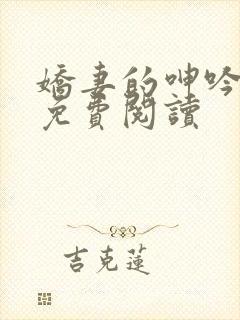 嬌妻的呻吟
免費閱讀
吉克蓮